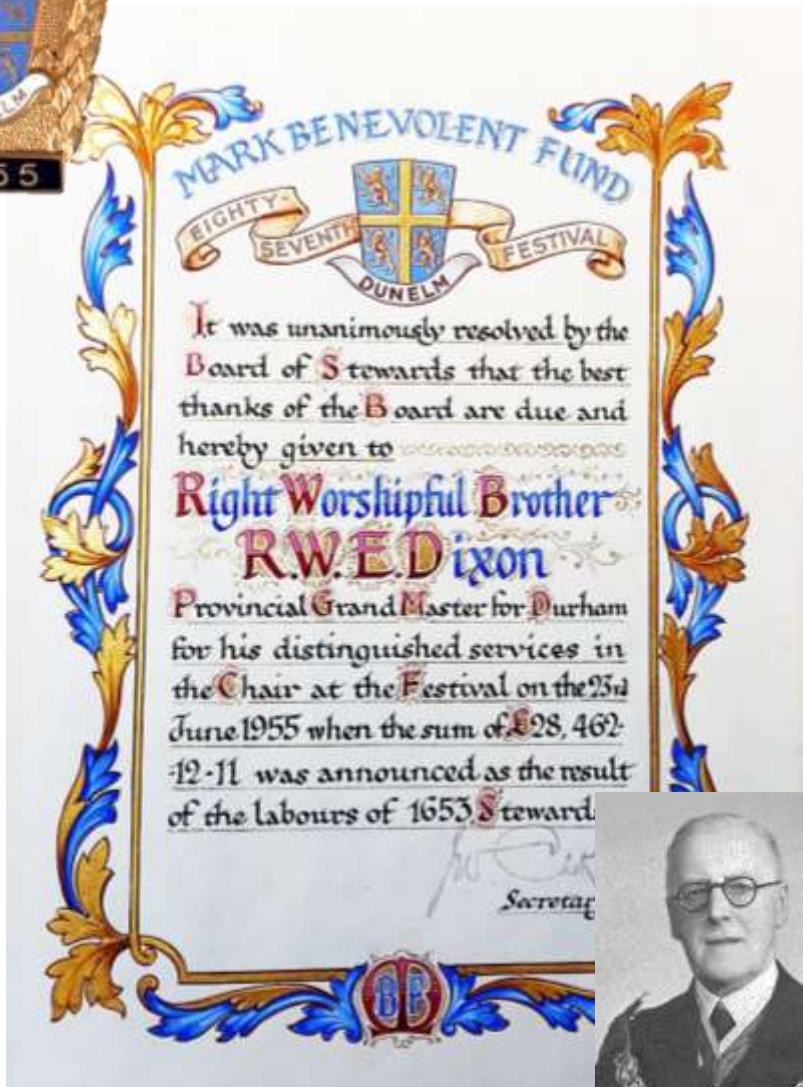 LM
55
MARK BENEVOLENT FUND
EIGHTY-
SEVENTH
FESTIVAL
DUNELM
It was unanimously resolved by the
Board of Stewards that the best
thanks of the Board are due and
hereby given to
Right Worshipful Brother
R.W.E.Dixon
Provincial Grand Master for Durham
for his distinguished services in
the Chair at the Festival on the 23rd
June 1955 when the sum of £28,462-
-12-11 was announced as the result
of the labours of 1653 Steward
Secretar